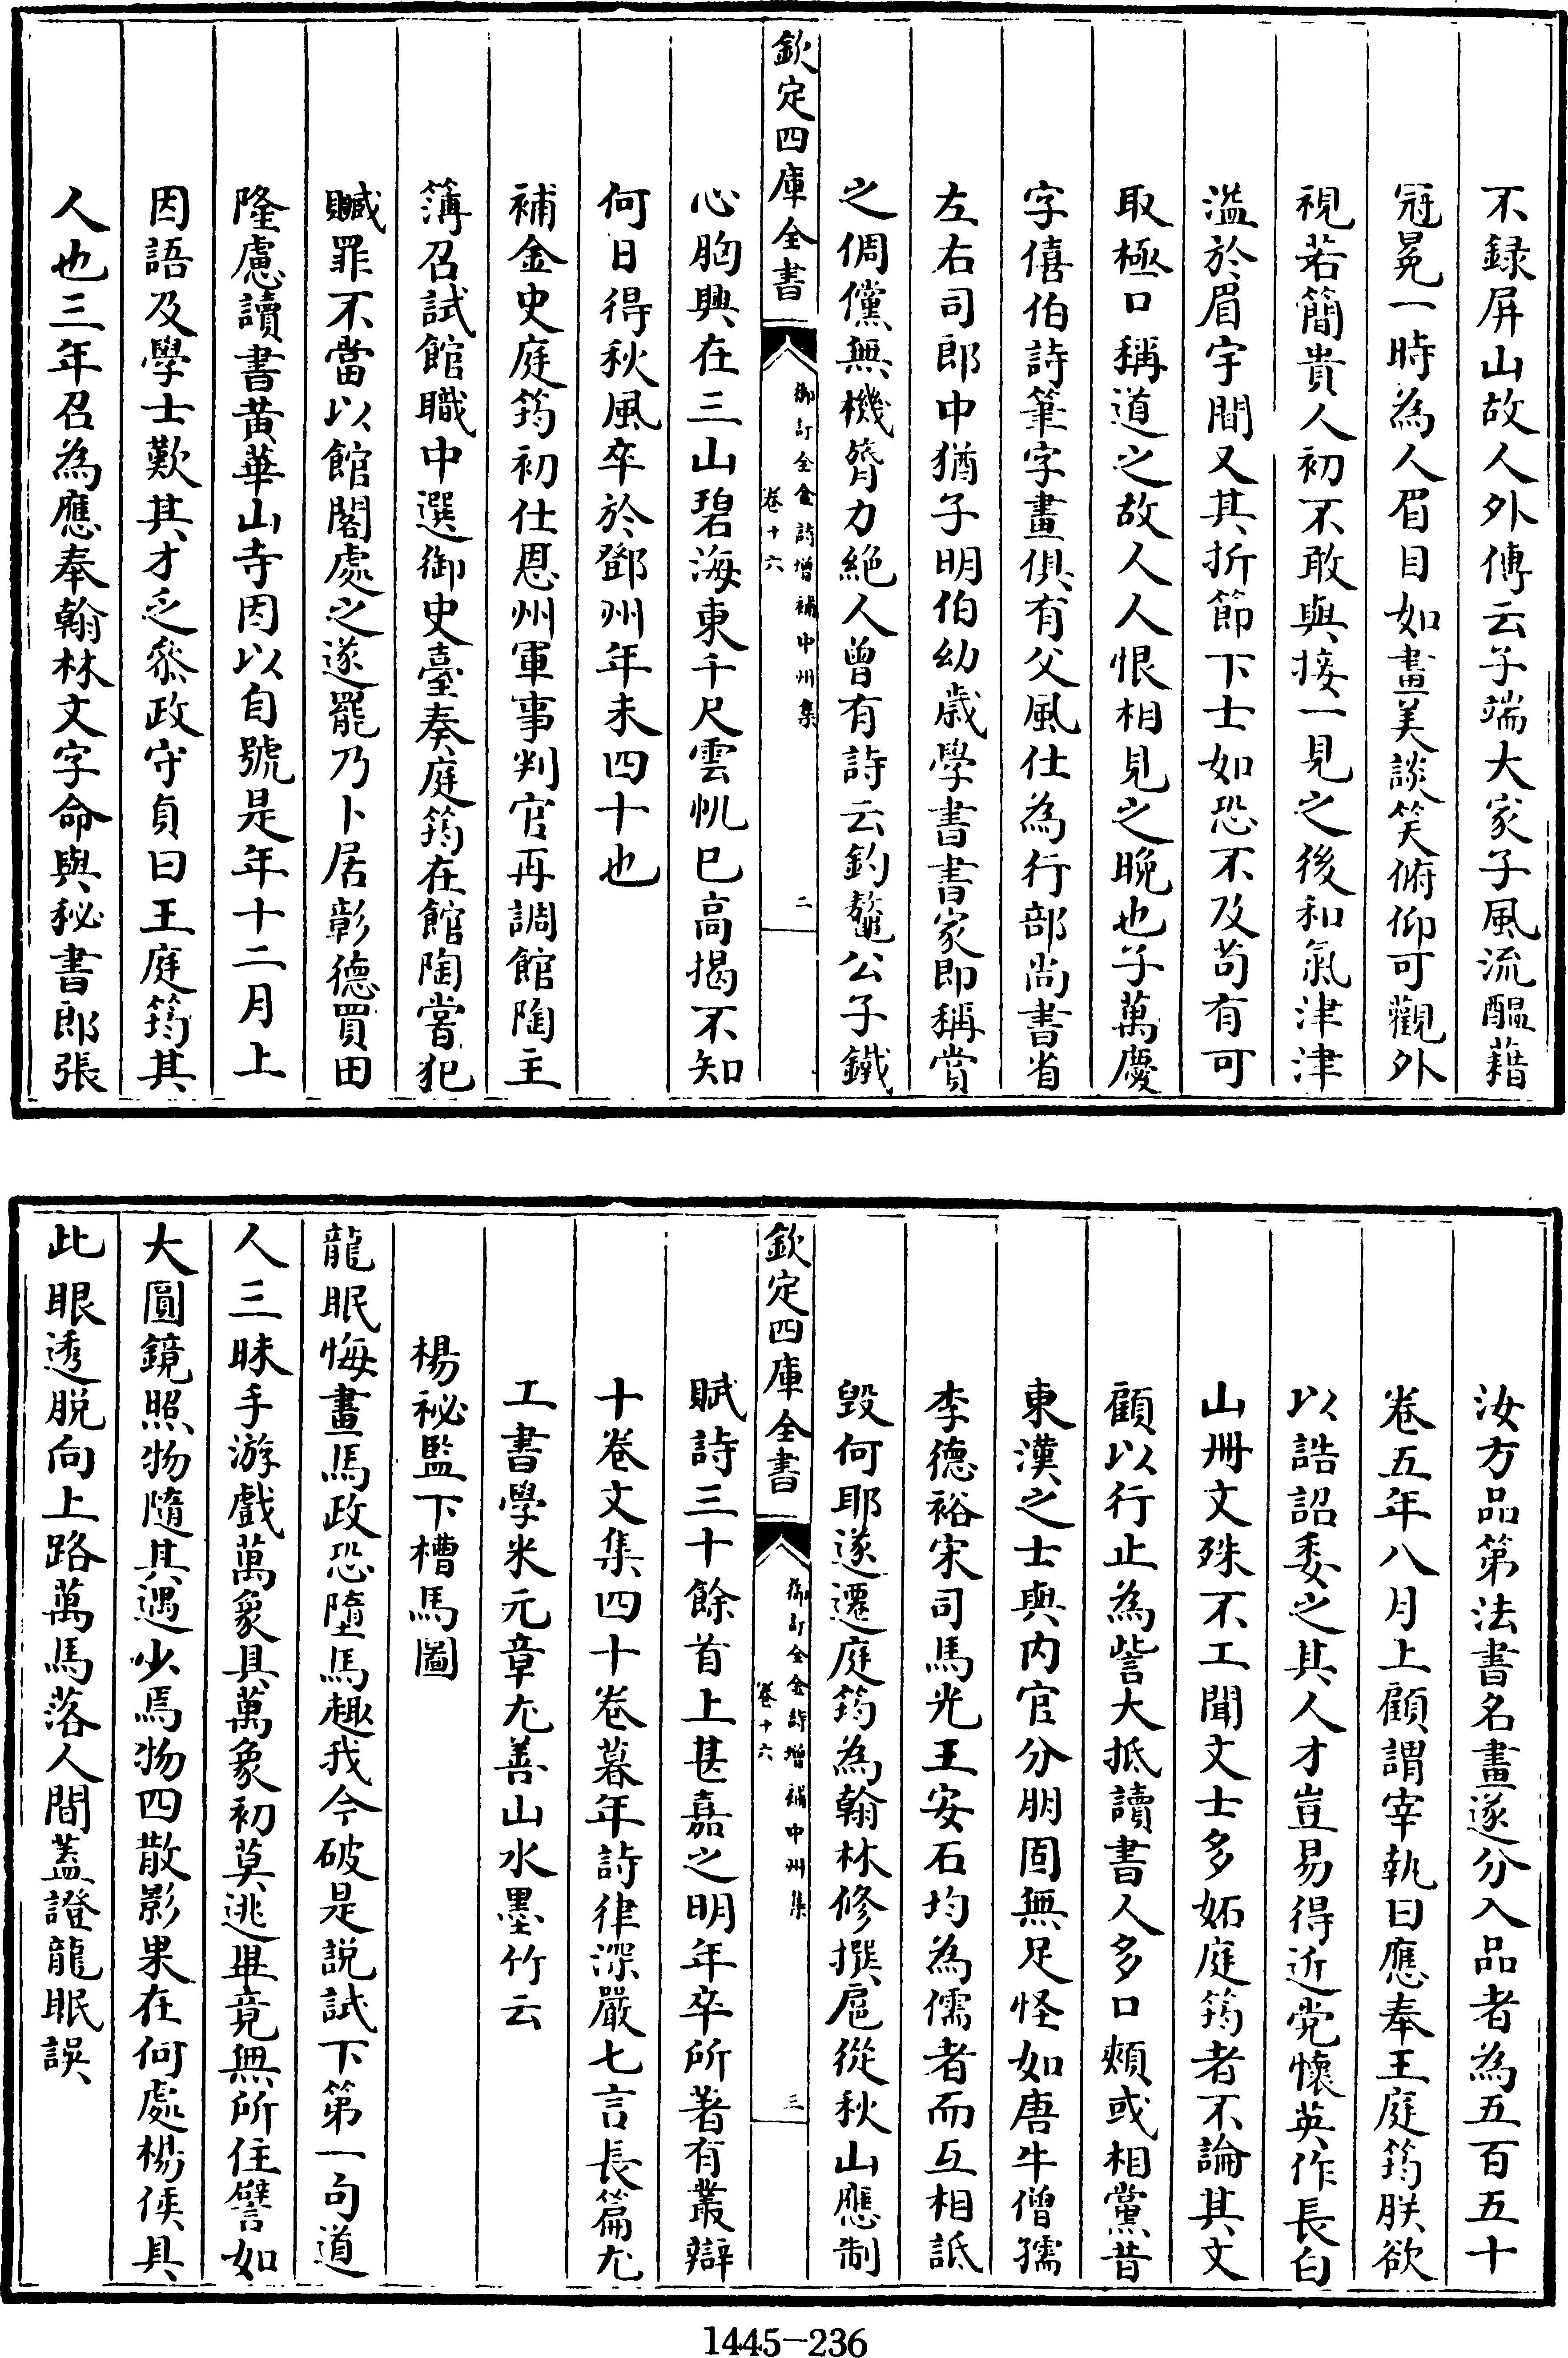 不録屏山故人外傳云子端大家子風流醖藉
冠冕一時為人眉目如畫美談笑俯仰可觀外
視若簡貴人初不敢與接一見之後和氣津津
溢於眉宇間又其折節下士如恐不及茍有可
取極口稱道之故人人恨相見之晚也子萬慶
字僖伯詩筆字畫俱有父風仕為行部尚書省
左右司郎中猶子明伯幼歲學書書家即稱賞
之倜儻無機膂力絶人曾有詩云釣鼇公子鐵
欽定四庫全書
御訂全金詩增補中州集
卷十六
二
心胸興在三山碧海東千尺雲帆已高揭不知
何日得秋風卒於鄧州年未四十也
補金史庭筠初仕恩州軍事判官再調館陶主
簿召試館職中選御史臺奏庭筠在館陶嘗犯
贓罪不當以館閣處之遂罷乃卜居彰德買田
隆慮讀書黃華山寺因以自號是年十二月上
因語及學士歎其才乏叅政守貞曰王庭筠其
人也三年召為應奉翰林文字命與秘書郎張
汝方品第法書名畫遂分入品者為五百五十
卷五年八月上顧謂宰執曰應奉王庭筠朕欲
以誥詔委之其人才豈易得近党懷英作長白
山冊文殊不工聞文士多妬庭筠者不論其文
顧以行止為訾大抵讀書人多口頰或相黨昔
東漢之士與内官分朋固無足怪如唐牛僧孺
李德裕宋司馬光王安石均為儒者而互相詆
毀何耶遂遷庭筠為翰林修撰扈從秋山應制
欽定四庫全書
御訂全金詩增補中州集
卷十六
三
賦詩三十餘首上甚嘉之明年卒所著有叢辯
十卷文集四十卷暮年詩律深嚴七言長篇尤
工書學米元章尤善山水墨竹云
楊祕監下槽馬圖
龍眠悔畫馬政恐墮馬趣我今破是説試下第一句道
人三昧手游戲萬象具萬象初莫逃畢竟無所住譬如
大圓鏡照物隨其遇少焉物四散影果在何處楊侯具
此眼透脱向上路萬馬落人間蓋證龍眠誤
1445-236